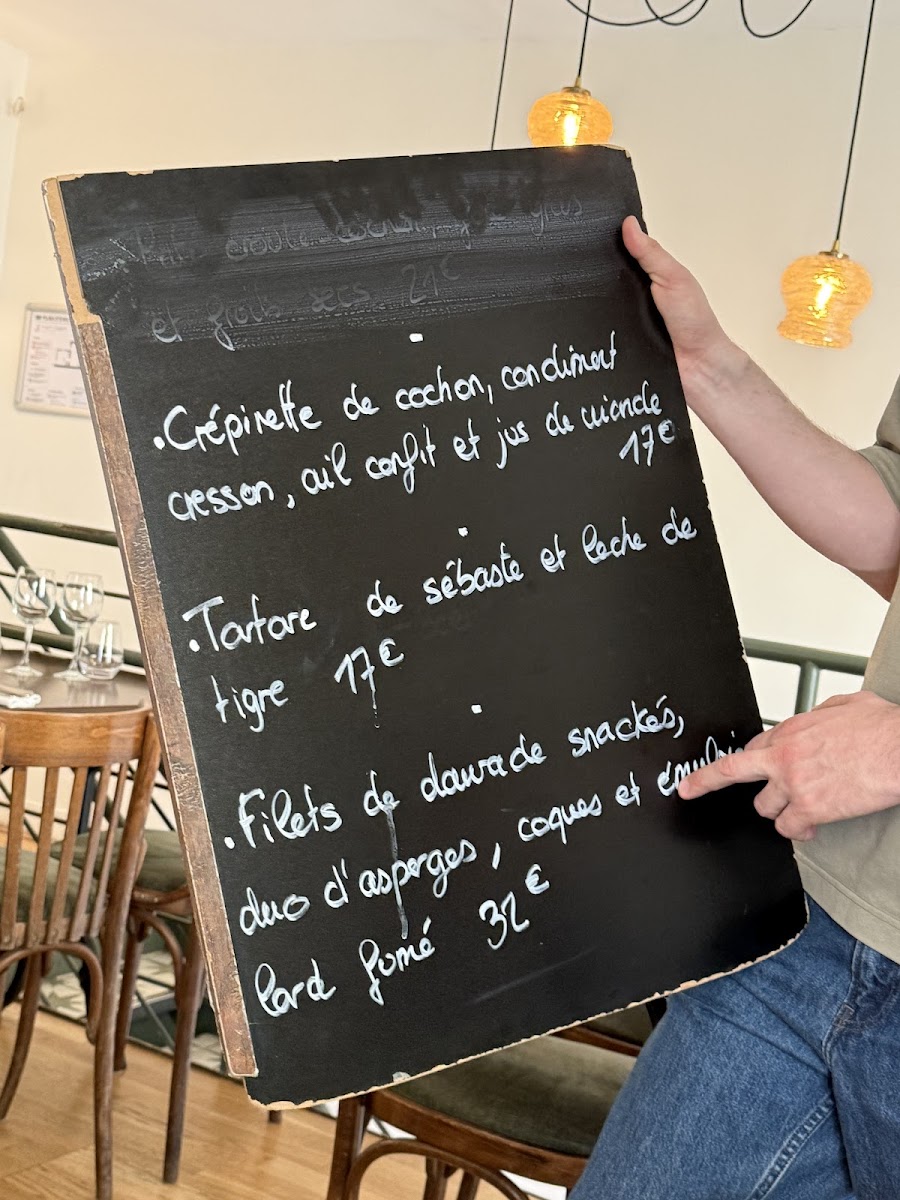 et fruits secs 21€
• Crépinette de cochon, condiment
cresson, ail confit et jus de viande
17€
• Tartare de sébaste et leche de
tigre 17€
• Filets de daurade snackés,
duo d'asperges, coques et
lard fumé 32€